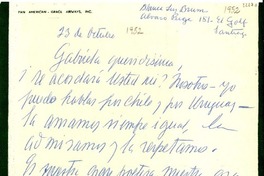 PAN AMERICAN-GRACE AIRWAYS, INC.
Blanca Luz Brum 1952
Alvaro 181- El Golf
Santiago
23 de octubre 1952
Gabriela queridísima,
¿Se acordará Usted de? Nosotros - yo
puedo hablar por Chile y por Uruguay -
la amamos siempre igual, la
admiramos y la respetamos.
Es nuestra gran nuestra